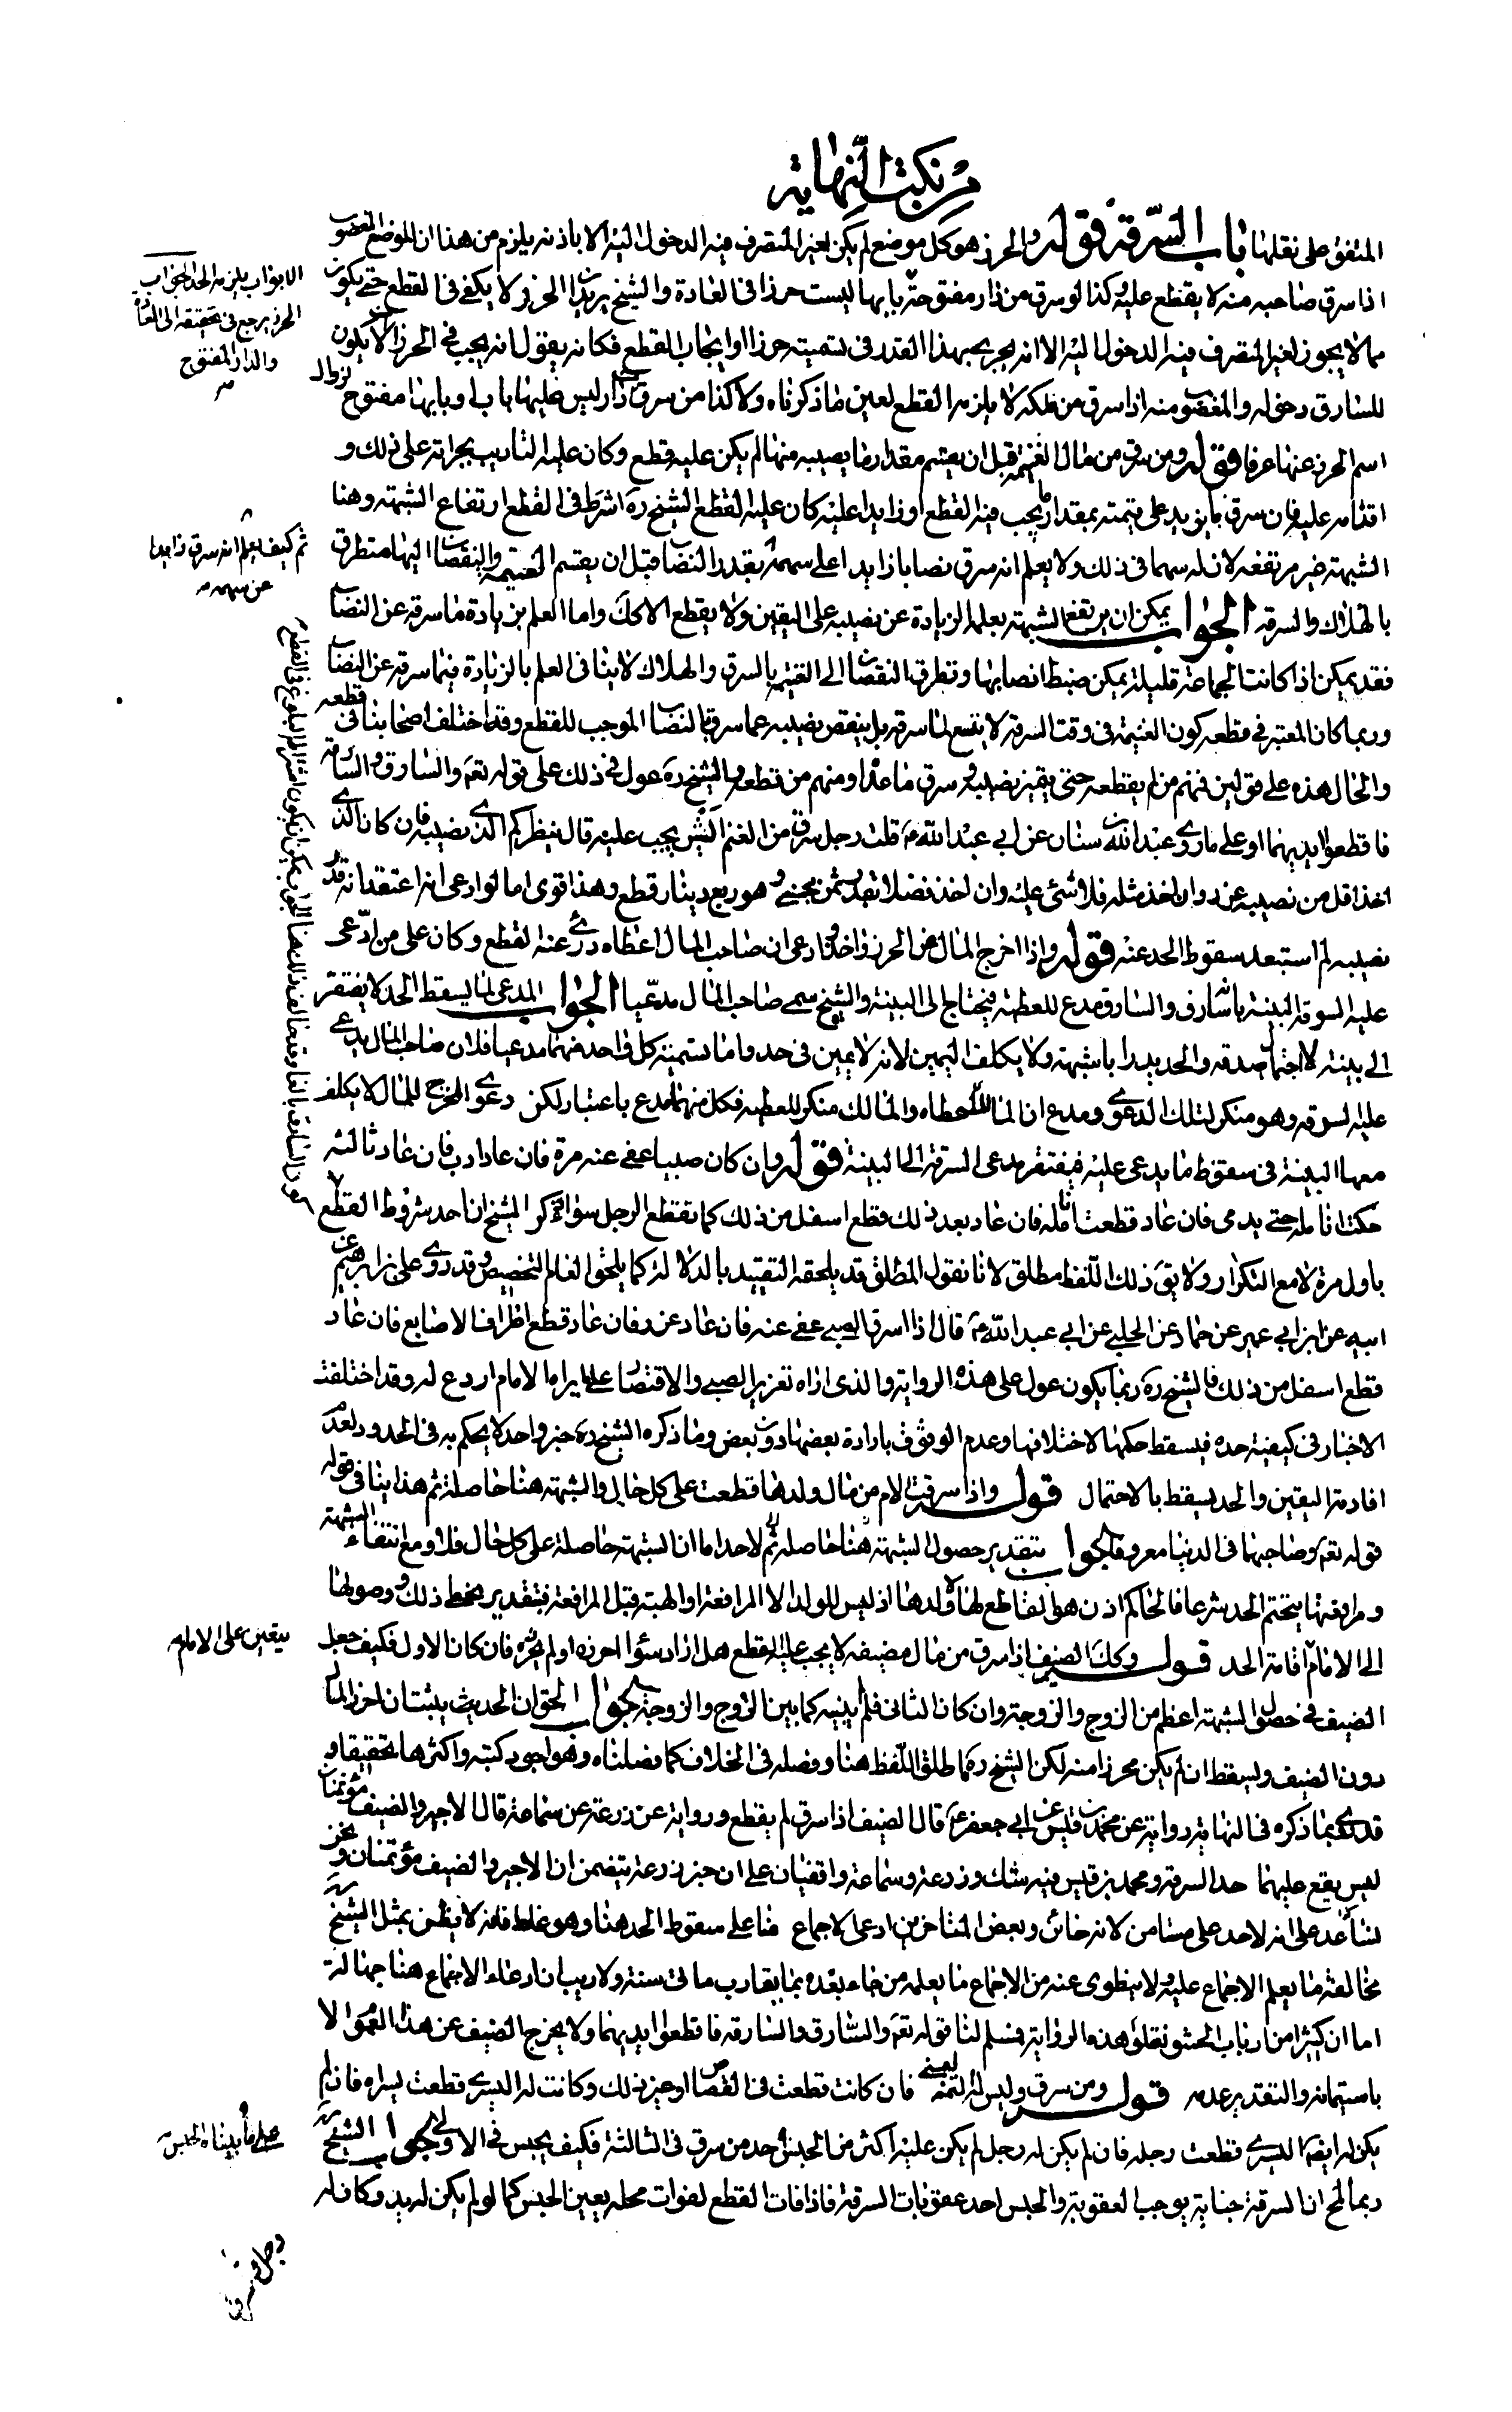 من نكت النهاية
المتفق على نقلها باب السرقة قوله والحرز هو كل موضع لم يكن لغير المتصرف فيه الدخول اليه الا باذنه يلزم من هذا ان الموضع المغصوب
اذا سرق صاحبه منه لا يقطع عليه وكذا لو سرق من دار مفتوحة بابها ليست حرزا في العادة والشيخ يريد ان الحرز لا يكفي في القطع حتى يكون
مما لا يجوز لغير المتصرف فيه الدخول اليه الا انه بهذا القدر في تسميته حرزا او ايجاب القطع فكانه يقول انه يجب في الحرز ان لا يكون
للسارق دخوله والمغصوب منه اذا سرق من ملكه لا يلزمه القطع لعين ما ذكرناه وكذا من سرق من دار ليس عليها باب او بابها مفتوح لزوال
اسم الحرز عنها عرفا قوله ومن سرق من مال الغنيمة قبل ان يقسم مقدار ما يصيبه منها لم يكن عليه قطع وكان عليه التاديب بجراته على ذلك و
اقدامه عليه فان سرق ما يزيد على قيمته بمقدار ما يجب فيه القطع او زايدا عليه كان عليه القطع الشيخ ره اشترط في القطع ارتفاع الشبهة وهنا
الشبهة غير مرتفعة لان له سهما في ذلك ولا يعلم انه سرق نصابا زايدا على سهمه بقدر النصاب قبل ان يقسم الغنيمة والنقصان اليها متطرق
بالهلاك والسرقة الجواب يمكن ان يرتفع الشبهة بعلم الزيادة عن نصيبه على اليقين ولا يقطع الا كك واما العلم بزيادة ما سرقه عن النصاب
فقد يمكن اذا كانت الجماعة قليلة يمكن ضبط انصابها وتطرق النقصان الى الغنيمة بالسرق والهلاك لا ينافي العلم بالزيادة فيما سرقه عن النصاب
وربما كان المعتبر في قطعه كون الغنيمة في وقت السرقة لا يتسع لما سرقه بل ينقص نصيبه عما سرق بالنصاب الموجب للقطع وقد اختلف اصحابنا في قطعه
والحال هذه على قولين فمنهم من لم يقطعه حتى يتميز نصيبه وسرق ما عداه ومنهم من قطعه والشيخ ره عول في ذلك على قوله تعم والسارق والسارقة
فاقطعوا ايديهما او على ما روى عبد الله بن سنان عن ابي عبد الله ع قلت رجل سرق من الغنم اليش يجب عليه قال ينظر كم الذي نصيبه فان كان الذي
اخذ اقل من نصيبه عزر وان اخذ مثله فلا شئ عليه وان اخذ فضلا بقدر ثمن مجن وهو ربع دينار قطع وهذا قوى اما لو ادعى انه اعتقد انه قدر
نصيبه لم استبعد سقوط الحد عنه قوله واذا اخرج المال من الحرز واخذ وادعى ان صاحب المال اعطاه درئ عنه القطع وكان على من ادعى
عليه السرقة البينة بانه سارق والسارق مدع للعطية فيحتاج الى البينة والشيخ سمى صاحب المال مدعيا الجواب المدعى لما يسقط الحد لا يفتقر
الى بينة لاحتمال صدقه والحد يدرا بالشبهة ولا يكلف اليمين لانه لا يمين في حد واما تسمية كل واحد منهما مدعيا فلان صاحب المال يدعى
عليه السرقة وهو منكر لتلك الدعوى ومدع ان المالك اعطاه والمالك منكر للعطية فكل منهما مدع باعتبار لكن دعوى المخرج للمال لا يكلف
معها البينة في سقوط ما يدعى عليه فيفتقر مدعى السرقة الى البينة قوله وان كان صبيا عفى عنه مرة فان عاد ادب فان عاد ثالثة
حكت انامله حتى يدمى فان عاد قطعت انامله فان عاد بعد ذلك قطع اسفل من ذلك كما يقطع الرجل سواء ذكر الشيخ ان احد شروط القطع
باول مرة لا مع التكرار ولا يق ذلك اللفظ مطلق لانا نقول المطلق قد يلحقه التقييد بالدلالة كما يلحق العام التخصيص وقد روى على بن ابراهيم عن
ابيه عن ابن ابي عمير عن حماد عن الحلبي عن ابي عبد الله ع قال اذا سرق الصبي عفى عنه فان عاد عزر فان عاد قطع اطراف الاصابع فان عاد
قطع اسفل من ذلك فالشيخ ره ربما يكون عول على هذه الرواية والذى اراه تعزير الصبي والاقتصار على ما يراه الامام اردع له وقد اختلفت
الاخبار في كيفية حده فيسقط حكمها لاختلافها وعدم الوثوق بارادة بعضها دون بعض وما ذكره الشيخ ره خبر واحد لا يحكم به في الحدود لعدم
افادته اليقين والحد يسقط بالاحتمال قوله واذا سرقت الام من مال ولدها قطعت على كل حال والشبهة هنا حاصلة ثم هذا ينافي قوله
قوله تعم وصاحبهما في الدنيا معروفا الجواب بتقدير حصول الشبهة هنا حاصلة ثم لا حد اما ان الشبهة حاصلة على كل حال فلا ومع انتفاء الشبهة
ومرافعتها يتحتم الحد شرعا فالحاكم اذن هو القاطع لها لا ولدها اذ ليس للولد الا المرافعة او الهبة قبل المرافعة فبتقدير ذلك ووصولها
الى الامام اقامة الحد قوله وكك الضيف اذا سرق من مال مضيفه لا يجب عليه القطع هل اراد سواء احرزه او لم يحرزه فان كان الاول فكيف جعل
الضيف في حصول الشبهة اعظم من الزوج والزوجة وان كان الثاني فلم يبينه كما بين الزوج والزوجة الجواب الحق ان الحد يثبت ان احرز المال
دون الضيف ويسقط ان لم يكن محرزا منه لكن الشيخ ره اطلق اللفظ هنا وفصله في الخلاف كما فصلناه وهو اجود كتبه واكثرها تحقيقا و
قد روى بما ذكره في النهاية رواية عن محمد بن قيس عن ابي جعفر ع قال الضيف اذا سرق لم يقطع ورواية عن زرعة عن سماعة قال الاجير والضيف مؤتمنان
ليس يقع عليهما حد السرقة ومحمد بن قيس فيه شك وزرعة وسماعة واقفيان على ان خبر زرعة يتضمن ان الاجير والضيف مؤتمنان ونحن
نساعد على انه لا حد على مستامن لانه خائن وبعض المتاخرين ادعى الاجماع منا على سقوط الحد هنا وهو غلط فانه لا يظن بمثل الشيخ
مخالفة ما يعلم الاجماع عليه ولا ينطوى عنه من الاجماع ما يعلمه من جاء بعده بما يقارب مائتى سنة ولا ريب ان ادعاء الاجماع هنا جهالة
اما ان كثيرا من ارباب الحشو نقلوا هذه الرواية فنسلم لنا قوله تعم والسارق والسارقة فاقطعوا ايديهما ولا يخرج الضيف عن هذا العموم الا
باستيمانه والتقدير عدمه قوله ومن سرق وليس له اليمنى فان كانت قطعت في القصاص او غير ذلك وكانت له اليسرى قطعت يسراه فان لم
يكن له ايضا اليسرى قطعت رجله فان لم يكن له رجل لم يكن عليه اكثر من الحبس احد من سرق في الثالثة فكيف يحبس في الاولى الجواب الشيخ
ربما لمح ان السرقة جناية يوجب العقوبة والحبس احد عقوبات السرقة فاذا فات القطع لفوات محله يعين الحبس كما لو لم يكن له يد وكان له
الابواب يلزمه الحد الجواب
الحرز يرجع في تحقيقه الى العادة
والدار المفتوح
ثم كيف يعلم انه سرق زايدا
عن سهمه
يتعين على الامام
على ما بيناه الحبس